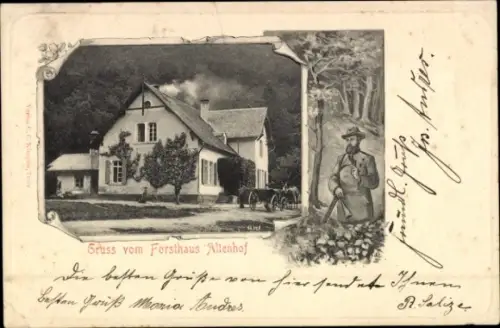 Gruss vom Forsthaus Altenhof
Die besten Grüße von hier sendete Ihnen
Besten Gruß Maria Andres
freundl. Gruß
Jos. Andres